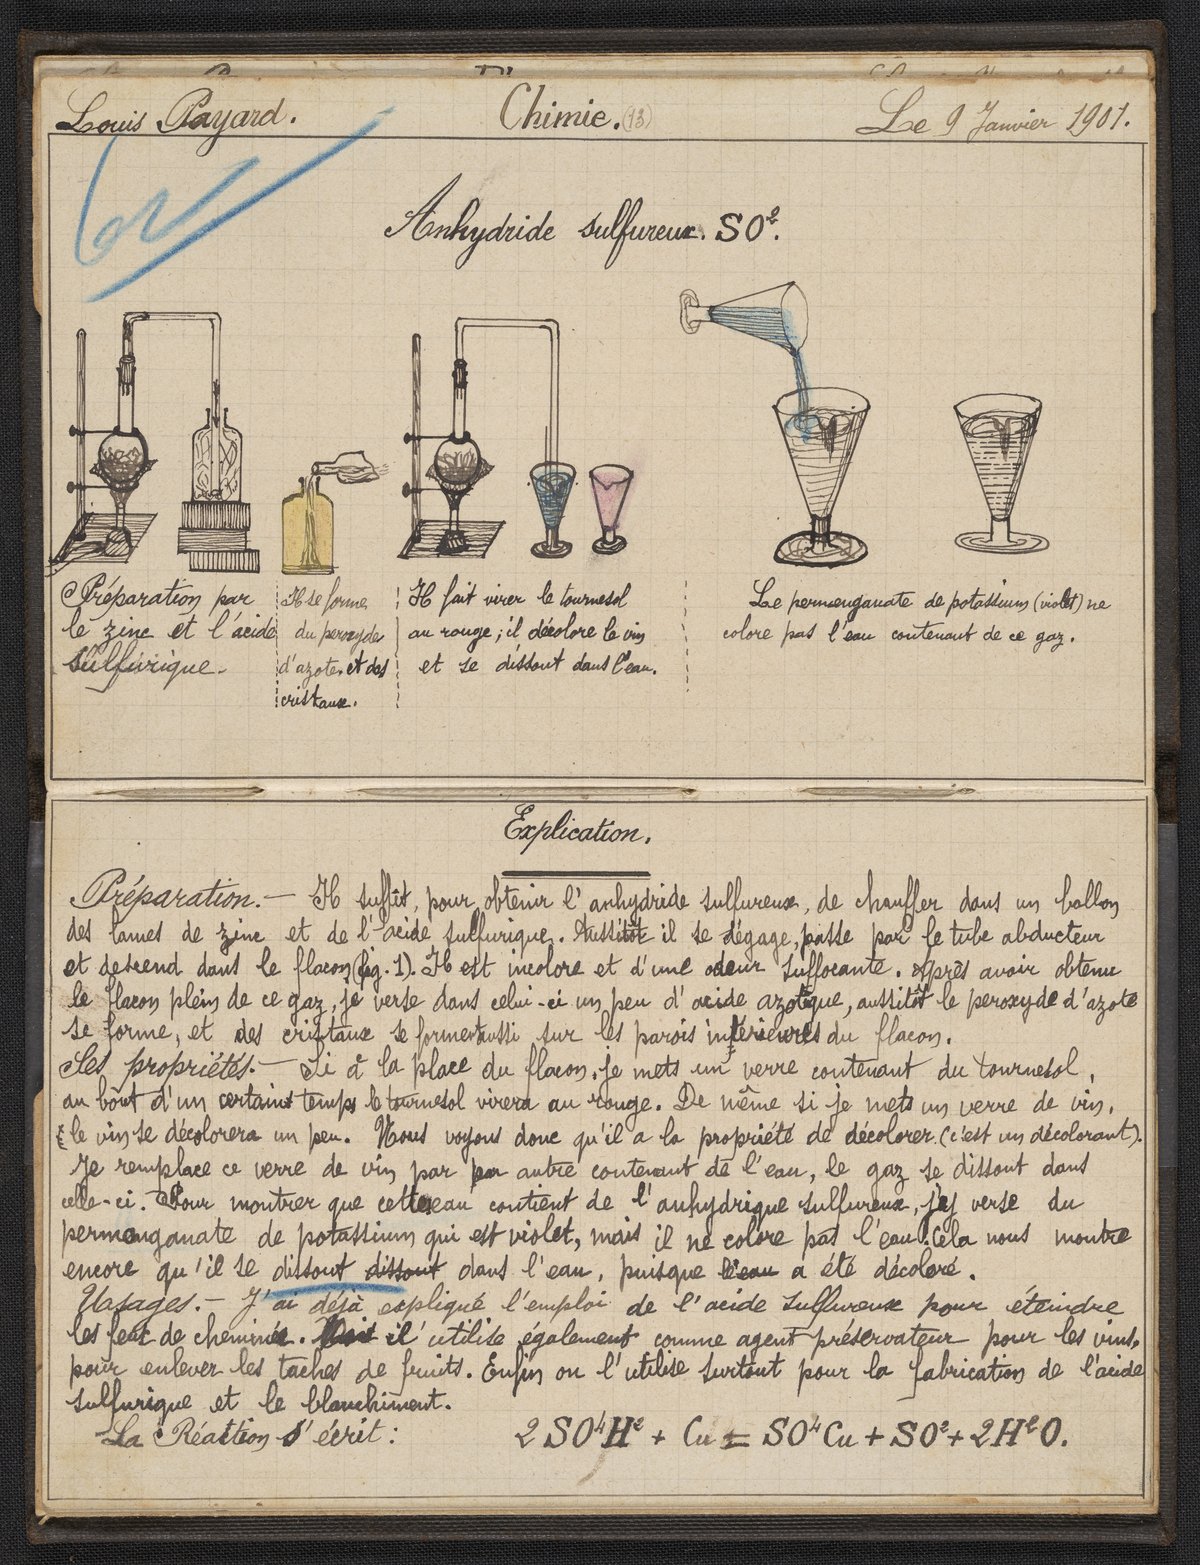 Louis Payard. Chimie. (13) Le 9 Janvier 1901.
Anhydride sulfureux. SO².
Préparation par
le zinc et l'acide
sulfurique.
Il se forme
du peroxyde
d'azote et des
cristaux.
Il fait virer le tournesol
au rouge; il décolore le vin
et se dissout dans l'eau.
Le permenganate de potassium (violet) ne
colore pas l'eau contenant de ce gaz.
Explication.
Préparation. — Il suffit, pour obtenir l'anhydride sulfureux, de chauffer dans un ballon
des lames de zinc et de l'acide sulfurique. Aussitôt il se dégage, passe par le tube abducteur
et descend dans le flacon (fig. 1). Il est incolore et d'une odeur suffocante. Après avoir obtenu
le flacon plein de ce gaz, je verse dans celui-ci un peu d'acide azotique, aussitôt le peroxyde d'azote
se forme, et des cristaux se forment aussi sur les parois inférieures du flacon.
Ses propriétés. — Si à la place du flacon, je mets un verre contenant du tournesol,
au bout d'un certains temps le tournesol virera au rouge. De même si je mets un verre de vin,
le vin se décolorera un peu. Nous voyons donc qu'il a la propriété de décolorer (c'est un décolorant).
Je remplace ce verre de vin par un autre contenant de l'eau, le gaz se dissout dans
celle-ci. Pour montrer que cette eau contient de l'anhydrique sulfureux, j'y verse du
permanganate de potassium qui est violet, mais il ne colore pas l'eau. Cela nous montre
encore qu'il se dissout dissout dans l'eau, puisque l'eau a été décoloré.
Usages. — J'ai déjà expliqué l'emploi de l'acide sulfureux pour éteindre
les feux de cheminée. il s'utilise également comme agent préservateur pour les vins,
pour enlever les taches de fruits. Enfin on l'utilise surtout pour la fabrication de l'acide
sulfurique et le blanchiment.
La Réaction s'écrit : 2 SO⁴H² + Cu = SO⁴Cu + SO² + 2H²O.